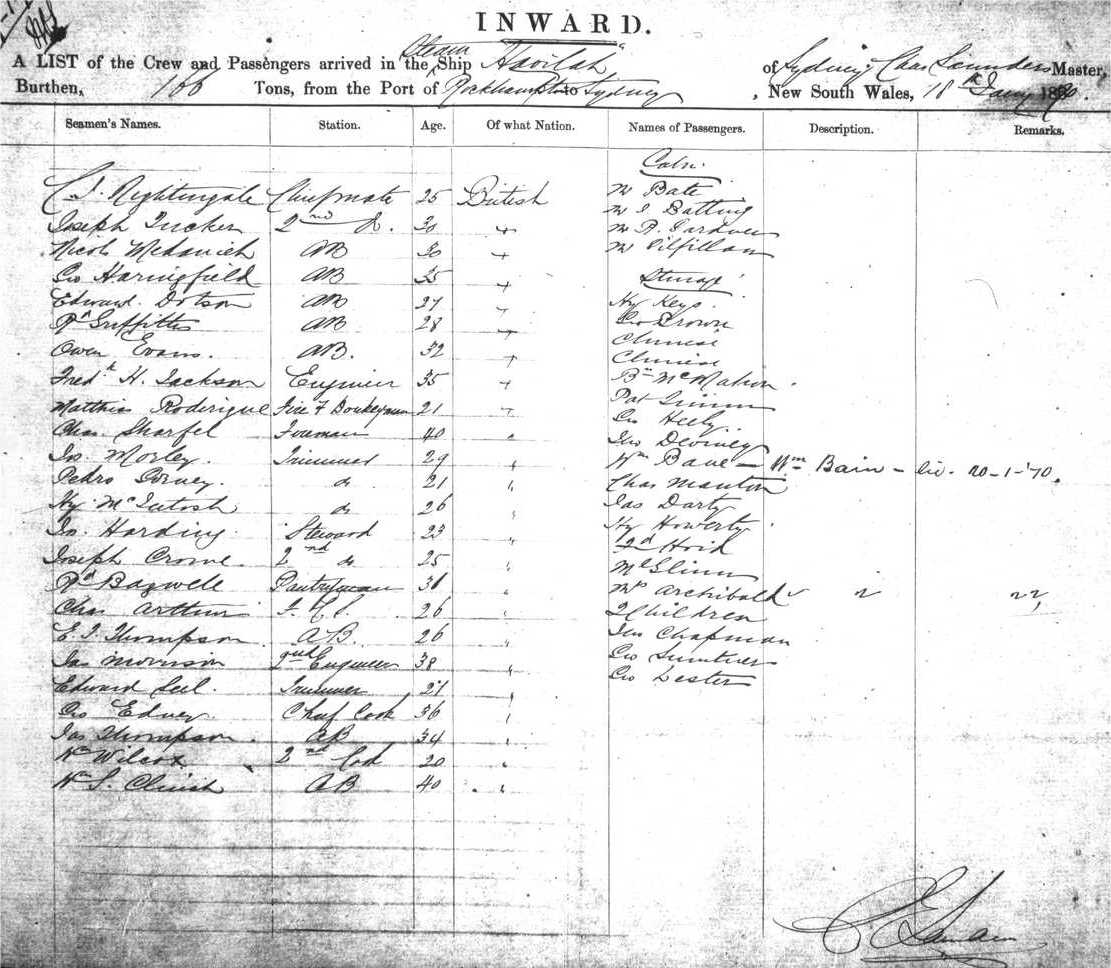 INWARD.
A LIST of the Crew and Passengers arrived in the Steam Ship "Havilah" of Sydney Chas Saunders Master,
Burthen, 166 Tons, from the Port of Rockhampton to Sydney, New South Wales, 18th Jany 1870.
Seamen's Names. Station. Age. Of what Nation. Names of Passengers. Description. Remarks.
Cabin.
Nightingale Chiefmate 25 British Mr Bate
Joseph Tucker 2nd Do. 30 " Mr Batting
AB 30 " Mr R. Gardner
Geo Haringfield AB 35 " Mr Pilfillan
Steerage
Edward Dotson AB 27 " Hy Keys.
Rd Griffiths AB 28 " Geo Brown
Owen Evans. AB. 32 " Chinese
Chinese
Fredk H. Jackson Engineer 35 " McMahon
Matthias Roderigue Fire & Donkeyman 21 " Pat
Chas Sharfel Foreman 40 " Geo Heely
Jno Deviney
Jas. Morley. Trimmer 29 " Wm Bane - Wm Bain - 20-1-'70.
Pedro do 21 " Chas Manton
Hy McIntosh do 26 " Jas Darty
Jas. Harding. Steward 23 " Hy Howerty
Joseph Crowe. 2nd do 25 " Hoid
McGlinn
Rd Bagwell Pantryman 31 " Mrs Archibald " 22,
Chas Arthur 26 " 2 Children
E. J. Thompson AB. 26 " Jno Chapman
Jas Morrison 2nd Engineer 38 " Geo Sumtner
Edward Seel. Trimmer 21 " Geo Lester
Geo Edney. Chief Cook 36 "
Jas Thompson. AB 34 "
Wm Wilcox 2nd Cook 20 "
Wm S. Clinish AB 40 "